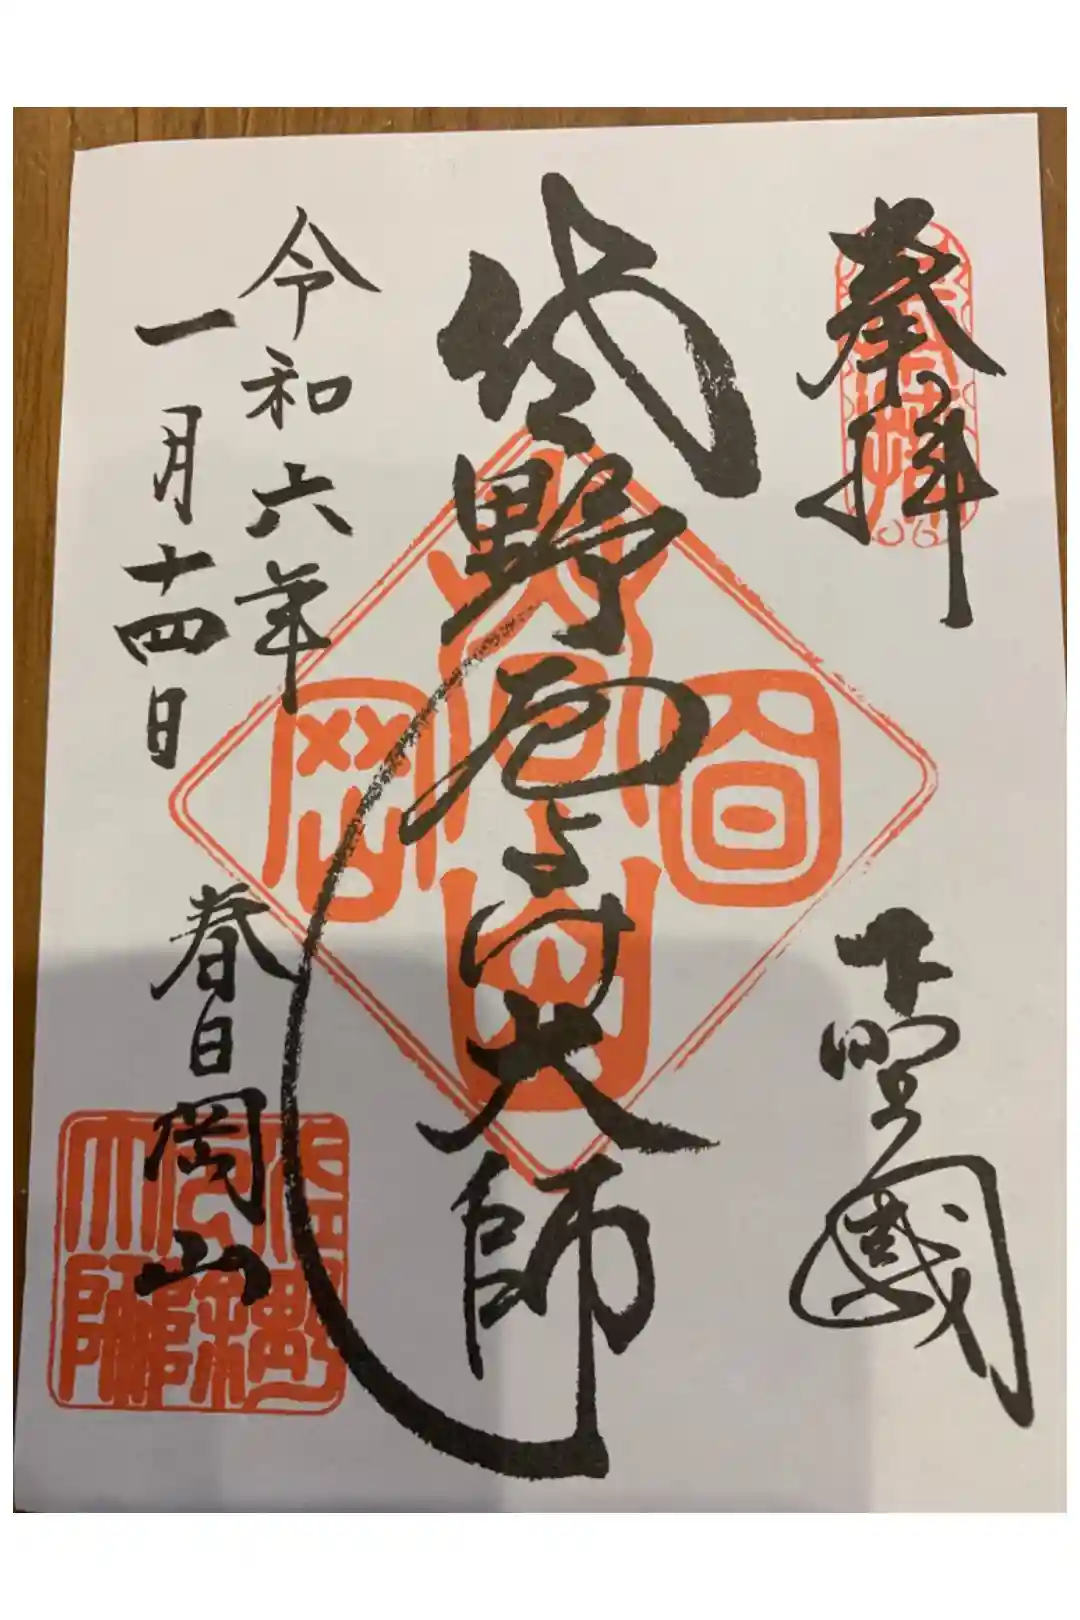 奉拝
下野國
佐野厄よけ大師
令和六年
一月十四日
春日岡山